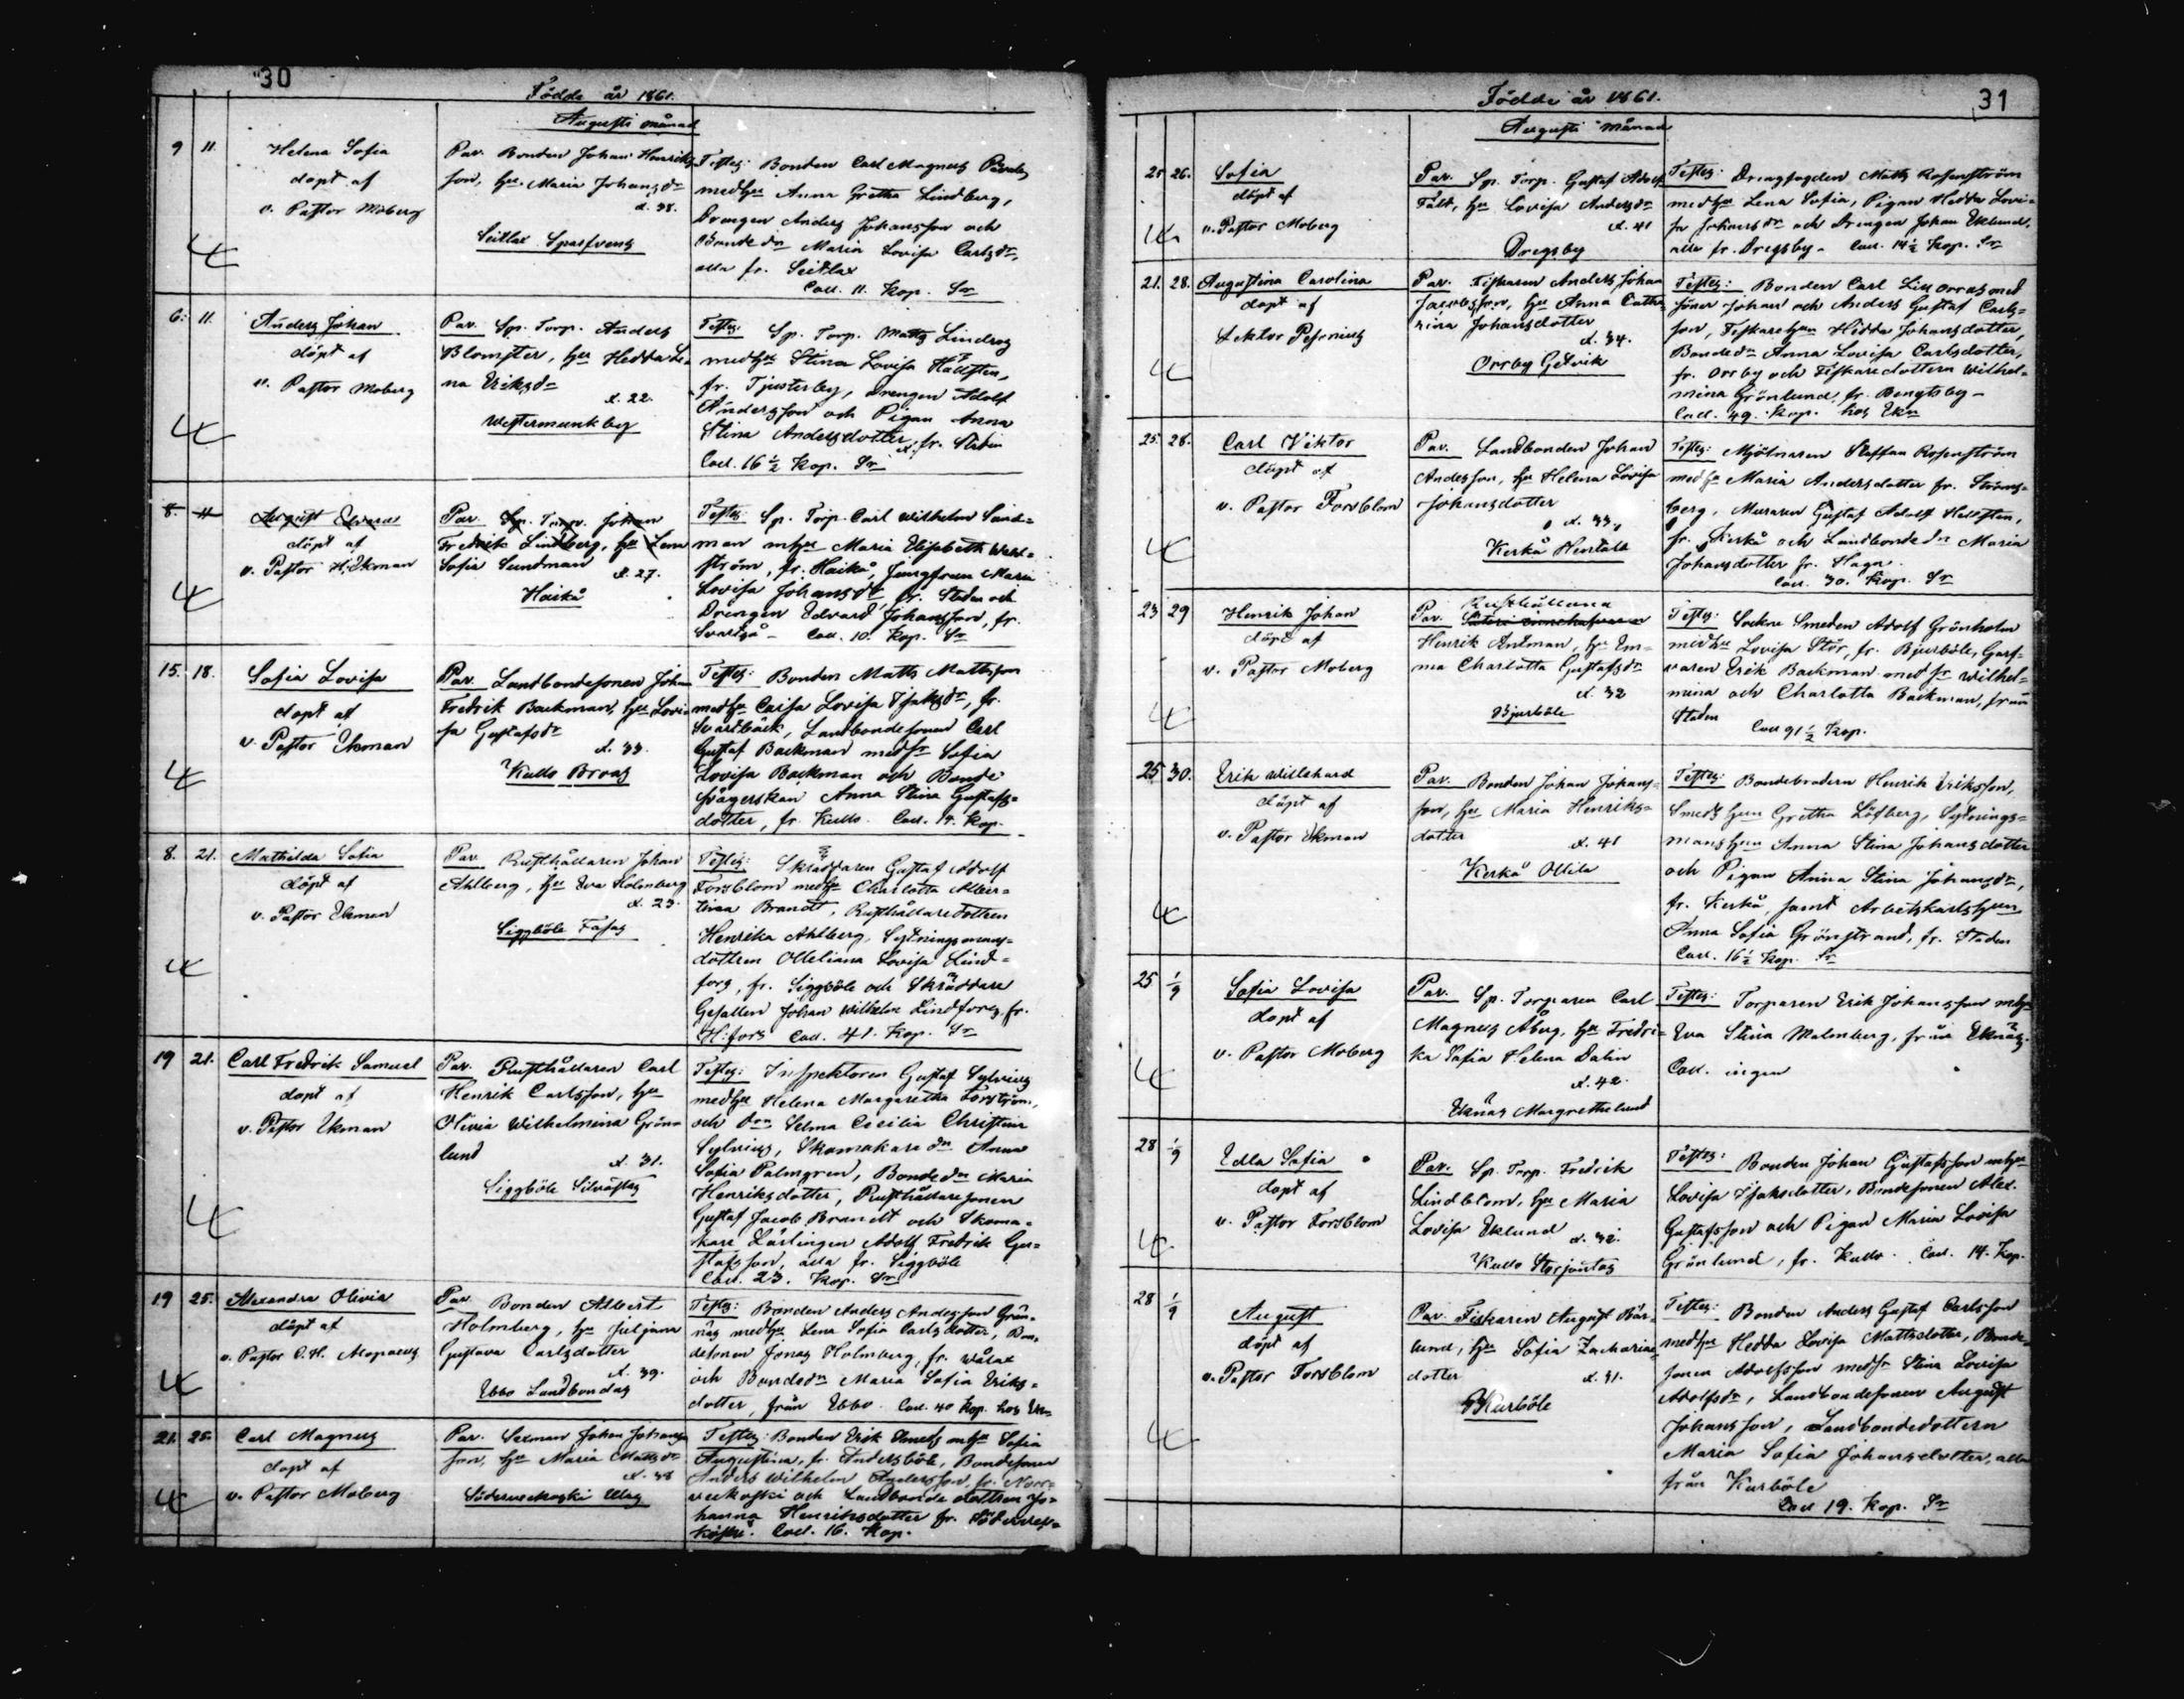 30
Födde år 1861.
Augusti månad
9 11.
Helena Sofia
döpt af
v. Pastor Moberg
Par. Bonden Johan Henriks
son, hu Maria Johansdr
d. 38.
Seitlax Sparfvens
Testes: Bonden Carl Magnus
med hu Anna Gretha Lindberg,
Drengen Anders Johansson och
Bonde dr Maria Lovisa Carlsdr,
alla fr. Seitlax
Coll. 11. Kop. Sr
6. 11.
Anders Johan
döpt af
v. Pastor Moberg
Par. Sp. Torp. Anders
Blomster, hu Hedda Le-
na Eriksdr
d. 22.
Westermunkby
Testes: Sp. Torp. Matts Lindros
med hu Stina Lovisa Hällsten,
fr. Tjusterby, Drengen Adolf
Andersson och Pigan Anna
Stina Andersdotter, fr. Staden
Coll. 16 1/2 Kop. Sr
8. 11
August Edvard
döpt af
v. Pastor H. Ekman
Par. Sp. Torp. Johan
Fredrik Lindberg, hu Lena
Sofia Sundman
d. 27.
Haikå
Testes: Sp. Torp. Carl Wilhelm Sand=
man m hu Maria Elisabeth
ström, fr. Haikå, Jungfrun Maria
Lovisa Johansdr fr. Staden och
Drengen Edvard Johansson, fr.
Svartså - Coll. 10. Kop. Sr
15. 18.
Sofia Lovisa
döpt af
v. Pastor Ekman
Par. Landbondesonen Johan
Fredrik Backman, hu Lovi-
sa Gustafsdr
d. 33.
Kullo Broas
Testes: Bonden Matts Mattsson
med hu Caisa Lovisa Isaksdr, fr.
Svartbäck, Landbondesonen Carl
Gustaf Backman med sr Sofia
Lovisa Backman och Bonde
svägerskan Anna Stina Gustafs=
dotter, fr. Kullo. Coll. 14. Kop.
8. 21.
Mathilda Sofia
döpt af
v. Pastor Ekman
Par. Rusthållaren Johan
Ahlberg, hu Eva Holmberg
d. 23.
Siggböle Fasas
Testes: Skräddaren Gustaf Adolf
Forsblom med hu Charlotta Alber=
tina Brandt, Rusthållaredottren
Henrika Ahlberg, Sytningsmans=
dottren Lovisa Lind=
fors, fr. Siggböle och Skräddare
Gesällen Johan Wilhelm Lindfors, fr.
H:fors Coll. 41. Kop. Sr
19 21.
Carl Fredrik Samuel
döpt af
v. Pastor Ekman
Par. Rusthållaren Carl
Henrik Carlsson, hu
Olivia Wilhelmina Grön=
lund
d. 31.
Siggböle Silväfvas
Testes: Inspektoren Gustaf Sylvius
med hu Helena Margaretha Forström,
och drn Selma Cecilia Christina
Sylvius, Skomakare dn Anna
Sofia Palmgren, Bonde dn Maria
Henriksdotter, Rusthållaresonen
Gustaf Jacob Brandt och Skoma=
kare Lärlingen Adolf Fredrik Gu=
stafsson, alla fr. Siggböle
Coll. 23. Kop. Sr
19 25.
Alexandra Olivia
döpt af
v. Pastor C. H. Alopaeus
Par. Bonden Albert
Holmberg, hu Juliana
Gustava Carlsdotter
d. 39.
Ebbo Landbondas
Testes: Bonden Anders Andersson Grän=
näs med hu Lena Sofia Carlsdotter, Bon=
desonen Jonas Holmberg, fr. Wålax
och Bondedn Maria Sofia Eriks=
dotter, från Ebbo. Coll. 40 Kop. hos Ekn
21. 25.
Carl Magnus
döpt af
v. Pastor Moberg
Par. Sexman Johan Johans
son, hu Maria Mattsdr
d. 38
Söderveckoski Ulas
Testes: Bonden Erik m hu Sofia
Augustina, fr. Andersböle, Bondesonen
Anders Wilhelm Andersson, fr. Norr=
veckoski och Landbonde dottren Jo=
hanna Henriksdotter fr. Södervec=
koski. Coll. 16. Kop.
31
Födde år 1861.
Augusti månad
25 26.
Sofia
döpt af
v. Pastor Moberg
Par. Sp. Torp. Gustaf Adolf
Fält, hu Lovisa Andersdr
d. 41
Dregsby
Testes: Drengfogden Matts Rosenström
med hu Lena Sofia, Pigan Hedda Lovi=
sa Johansdr och Drengen Johan Eklund,
alla fr. Dregsby - Coll. 14 1/2 Kop. Sr
21. 28.
Augustina Carolina
döpt af
Lektor Pesonius
Par. Fiskaren Anders Johan
Jacobsson, hu Anna Catha
rina Johansdotter
d. 34.
Orrby Getvik
Testes: Bonden Carl med
söner Johan och Anders Gustaf Carls=
son, Fiskare hun Hedda Johansdotter,
Bondedn Anna Lovisa Carlsdotter,
fr. Orrby och Fiskaredottren Wilhel=
mina Grönlund, fr. Bengtsby -
Coll. 49. Kop. hos Ekn
25. 28.
Carl Viktor
döpt af
v. Pastor Forsblom
Par. Landbonden Johan
Andersson, hu Helena Lovisa
Johansdotter
d. 33.
Kerkå Hentala
Testes: Mjölnaren Staffan Rosenström
med hu Maria Andersdotter fr. Ströms=
berg, Muraren Gustaf Adolf Hällsten,
fr. Kerkå och Landbonde dn Maria
Johansdotter fr. Haga.
Coll. 30. Kop. Sr
23 29
Henrik Johan
döpt af
v. Pastor Moberg
Rusthållaren
Par.
Henrik Antman, hu Em=
ma Charlotta Gustafsdr
d. 32
Bjurböle
Testes: Sockne Smeden Adolf Grönholm
med hu Lovisa Stör, fr. Bjurböle, Garf=
varen Erik Backman med sr Wilhel=
mina och Charlotta Backman, från
Staden
Coll 91 1/2 Kop.
25 30.
Erik Willehard
döpt af
v. Pastor Ekman
Par. Bonden Johan Johans=
son, hu Maria Henriks=
dotter
d. 41
Kerkå Ollila
Testes: Bondebrodren Henrik Eriksson,
Smeds hun Gretha Löfberg, Sytnings=
mans hun Anna Stina Johansdotter
och Pigan Anna Stina Johansdr,
fr. Kerkå samt Arbetskarls hun
Anna Sofia Grönstrand, fr. Staden
Coll. 16 1/2 Kop. Sr
25 1/9
Sofia Lovisa
döpt af
v. Pastor Moberg
Par. Sp. Torparen Carl
Magnus Åberg, hu Fredri-
ka Sofia Helena Dalin
d. 42.
Eknäs Margrethelund
Testes: Torparen Erik Johansson m hu
Eva Stina Malmberg, från Eknäs.
Coll. ingen
28 1/9
Edla Sofia
döpt af
v. Pastor Forsblom
Par. Sp. Torp. Fredrik
Lindblom, hu Maria
Lovisa Eklund
d. 32.
Kullo Storjontas
Testes: Bonden Johan Gustafsson m hu
Lovisa Isaksdotter, Bondesonen Alex.
Gustafsson och Pigan Maria Lovisa
Grönlund, fr. Kullo. Coll. 14. Kop.
28 1/9
August
döpt af
v. Pastor Forsblom
Par. Fiskaren August Bär=
lund, hu Sofia Zacharias
dotter
d. 31.
Kurböle
Testes: Bonden Anders Gustaf Carlsson
med hu Hedda Lovisa Mattsdotter, Bonde=
sonen Adolfsson med sr Stina Lovisa
Adolfsdr, Landbondesonen August
Johansson, Landbondedottern
Maria Sofia Johansdotter, alla
från Kurböle
Coll 19. Kop. Sr